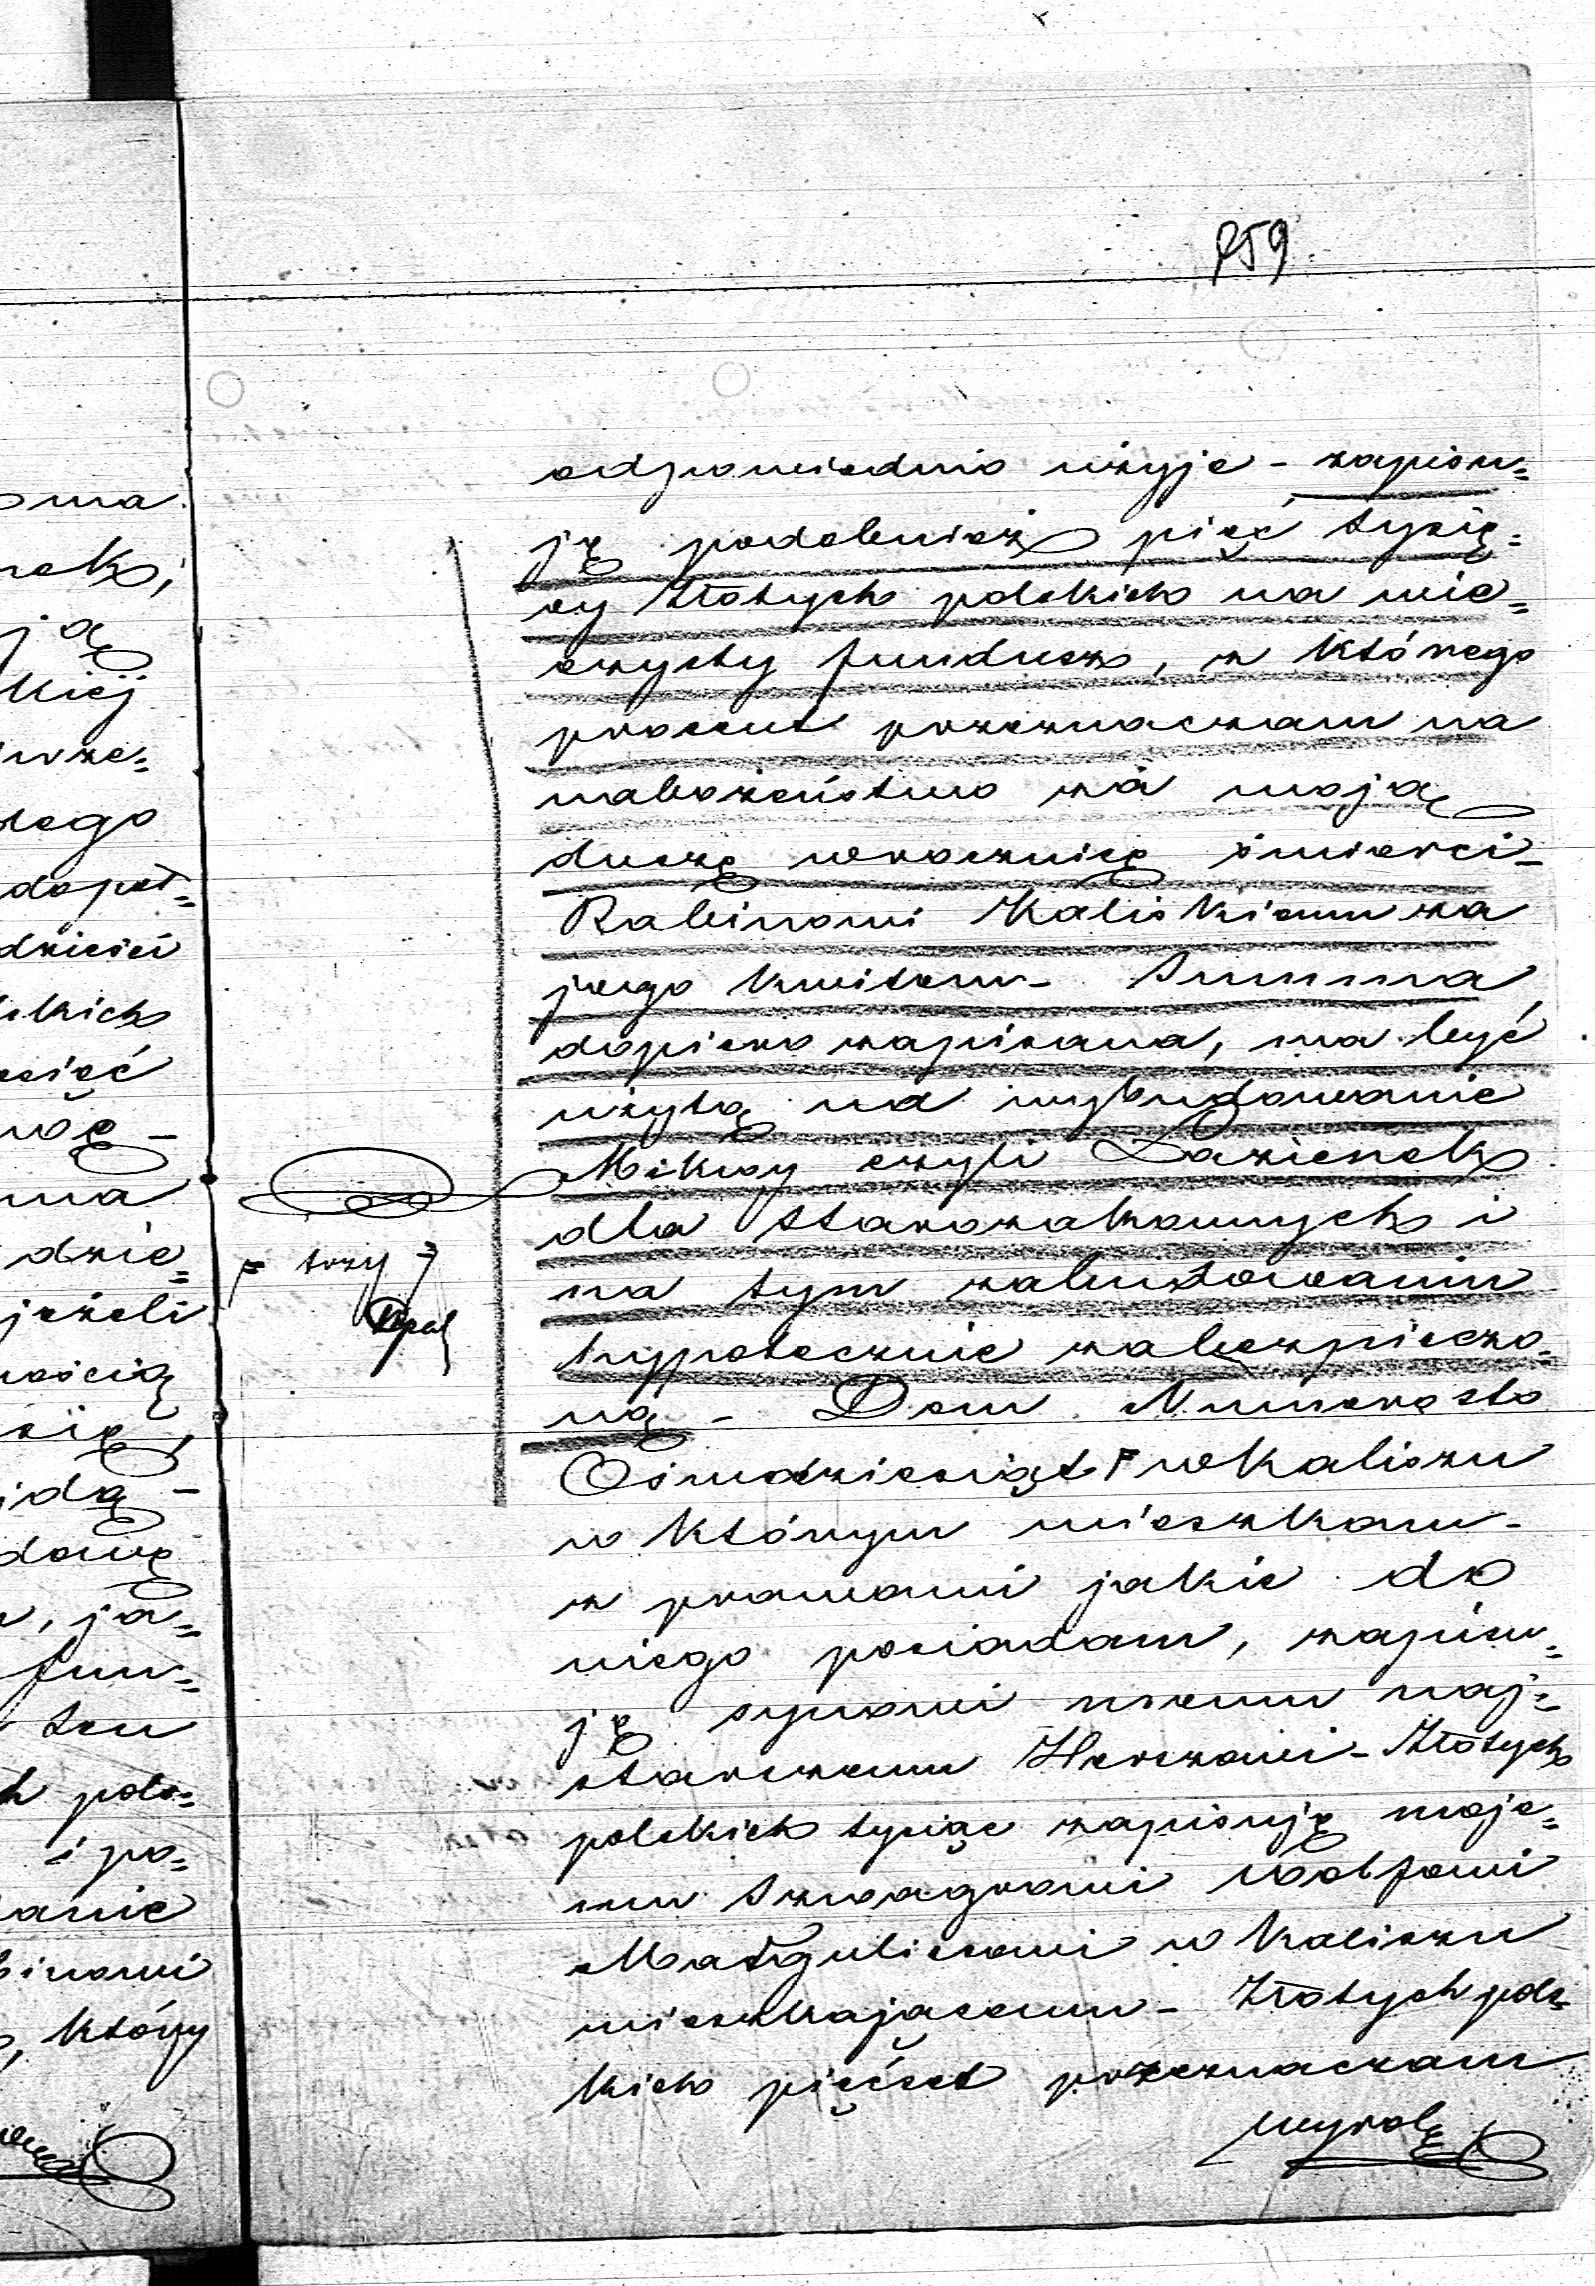 859
odpowiednio użyje - zapisu=
ję podobnież pięć tysię=
cy złotych polskich na wie=
czysty fundusz, z którego
procent przeznaczam na
nabożeństwo za moją
duszę w rocznicę śmierci -
Rabinowi Kaliskiemu za
jego kwitem - Summa
dopiero zapisana, ma być
użytą na wybudowanie
Mikwy czyli Łazienek
dla starozakonnych i
na tym zabudowaniu
hypotecznie zabezpieczo=
ną - Dom Numero sto
Ośmdziesiąt w Kaliszu
w którym mieszkam -
z prawami jakie do
niego posiadam, zapisu=
ję synowi memu naj=
starszemu Herszowi - Złotych
polskich tysiąc zapisuję moje=
mu szwagrowi Wolfowi
Marguliesowi w Kaliszu
mieszkającemu - Złotych pols=
kich pięćset przeznaczam
= trzy
oma
nek,
ją
kiej
dopeł=
dzieści
lskich
na
dzie=
jeżeli
nością
się,
idą -
, ja=
fun=
ten
pols=
i po=
anie
binowi
, który